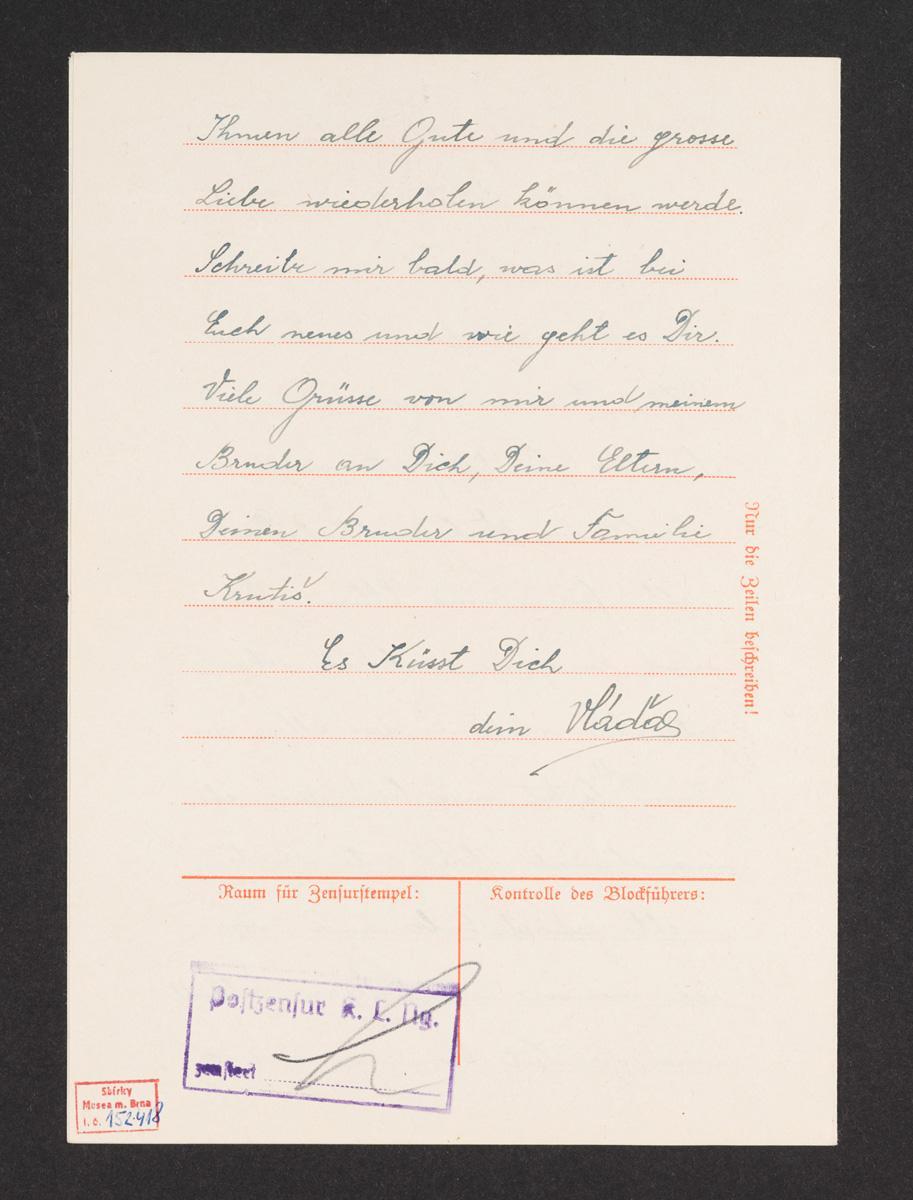 Ihnen alle Gute und die grosse
Liebe wiederholen können werde.
Schreibe mir bald, was ist bei
Euch neues und wie geht es Dir.
Viele Grüsse von mir und meinem
Bruder an Dich, Deine Eltern,
Deinen Bruder und Familie
Es Küsst Dich
dein Vláďa
Nur die Zeilen beschreiben!
Raum für Zensurstempel:
Kontrolle des Blockführers:
Postzensur K. L. Ng.
zensiert
Sbírky
Musea m. Brna
i. č. 152.918